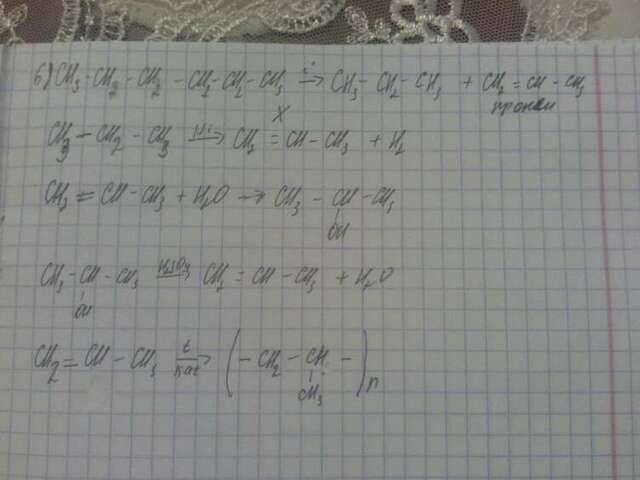 6) CH3-CH2-CH2-CH2-CH2-CH3 →(t) CH3-CH2-CH3 + CH2=CH-CH3
пропен
X
CH3-CH2-CH3 →(Ni) CH2=CH-CH3 + H2
CH2=CH-CH3 + H2O → CH3-CH-CH3
OH
CH3-CH-CH3 →(H2SO4) CH2=CH-CH3 + H2O
OH
CH2=CH-CH3 →(t, kat) (-CH2-CH-)n
CH3